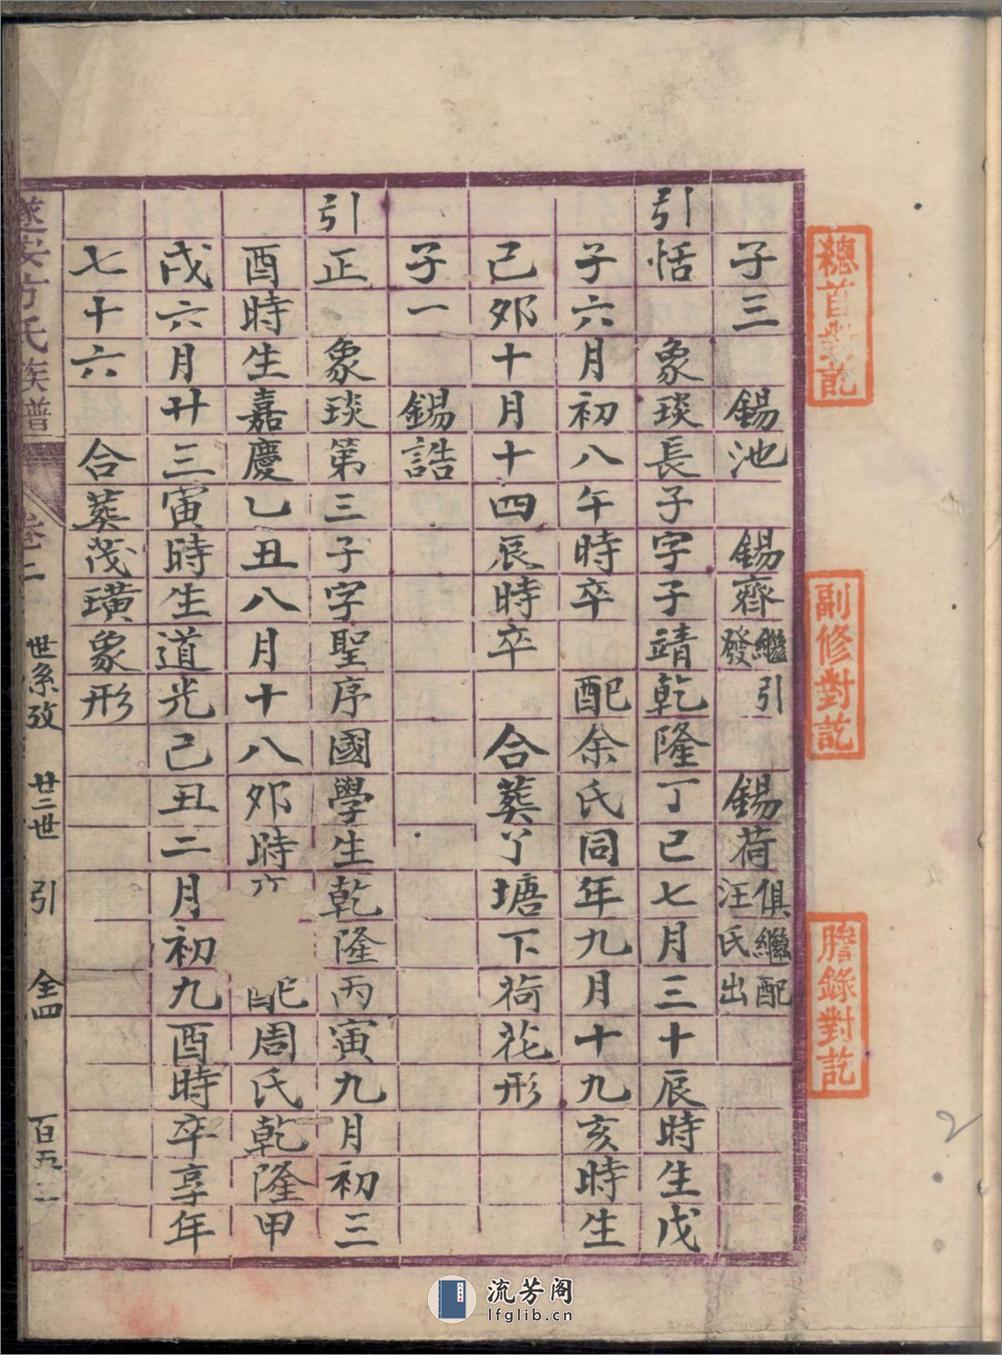 總首對訖
副修對訖
謄錄對訖
子三 錫池 錫齊繼引發 錫荷俱繼配汪氏出
引恬 象琰長子字子靖乾隆丁巳七月三十辰時生戊
子六月初八午時卒 配余氏同年九月十九亥時生
己夘十月十四辰時卒 合葬丫塘下荷花形
子一 錫誥
引正 象琰第三子字聖序國學生乾隆丙寅九月初三
酉時生嘉慶乙丑八月十八夘時 配周氏乾隆甲
戌六月廿三寅時生道光己丑二月初九酉時卒享年
七十六 合葬茂璜象形
遂安方氏族譜 卷二 世系攷 廿二世 引 仝四
流芳阁
lfglib.cn
2